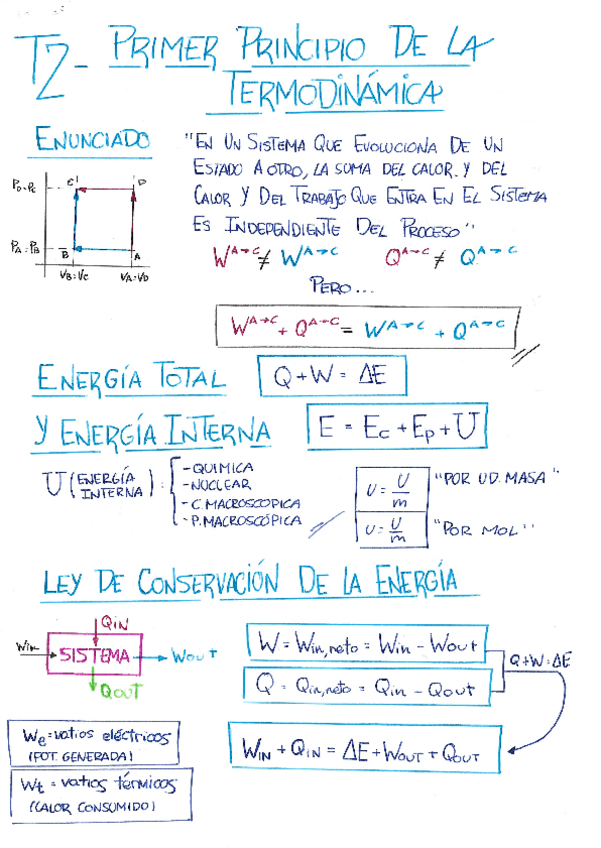 T2- PRIMER PRINCIPIO DE LA
TERMODINÁMICA
ENUNCIADO
"EN UN SISTEMA QUE EVOLUCIONA DE UN
ESTADO A OTRO, LA SUMA DEL CALOR. Y DEL
CALOR Y DEL TRABAJO QUE ENTRA EN EL SISTEMA
ES INDEPENDIENTE DEL PROCESO"
PD=PC
C
D
PA=PB
B
A
VB=VC
VA=VD
W^A→C ≠ W^A→C
Q^A→C ≠ Q^A→C
PERO...
W^A→C + Q^A→C = W^A→C + Q^A→C
ENERGÍA TOTAL
Q+W = ΔE
Y ENERGÍA INTERNA
E = Ec + Ep + U
U (ENERGÍA INTERNA):
-QUIMICA
-NUCLEAR
-C.MACROSCOPICA
-P.MACROSCÓPICA
u = U/m
"POR UD. MASA"
u = U/m
"POR MOL"
LEY DE CONSERVACIÓN DE LA ENERGÍA
QIN
WIN
SISTEMA
WOUT
QOUT
W = Win,neto = Win - Wout
Q = Qin,neto = Qin - Qout
Q+W=ΔE
WIN + QIN = ΔE + WOUT + QOUT
We = vatios eléctricos
(POT. GENERADA)
Wt = vatios térmicos
(CALOR CONSUMIDO)